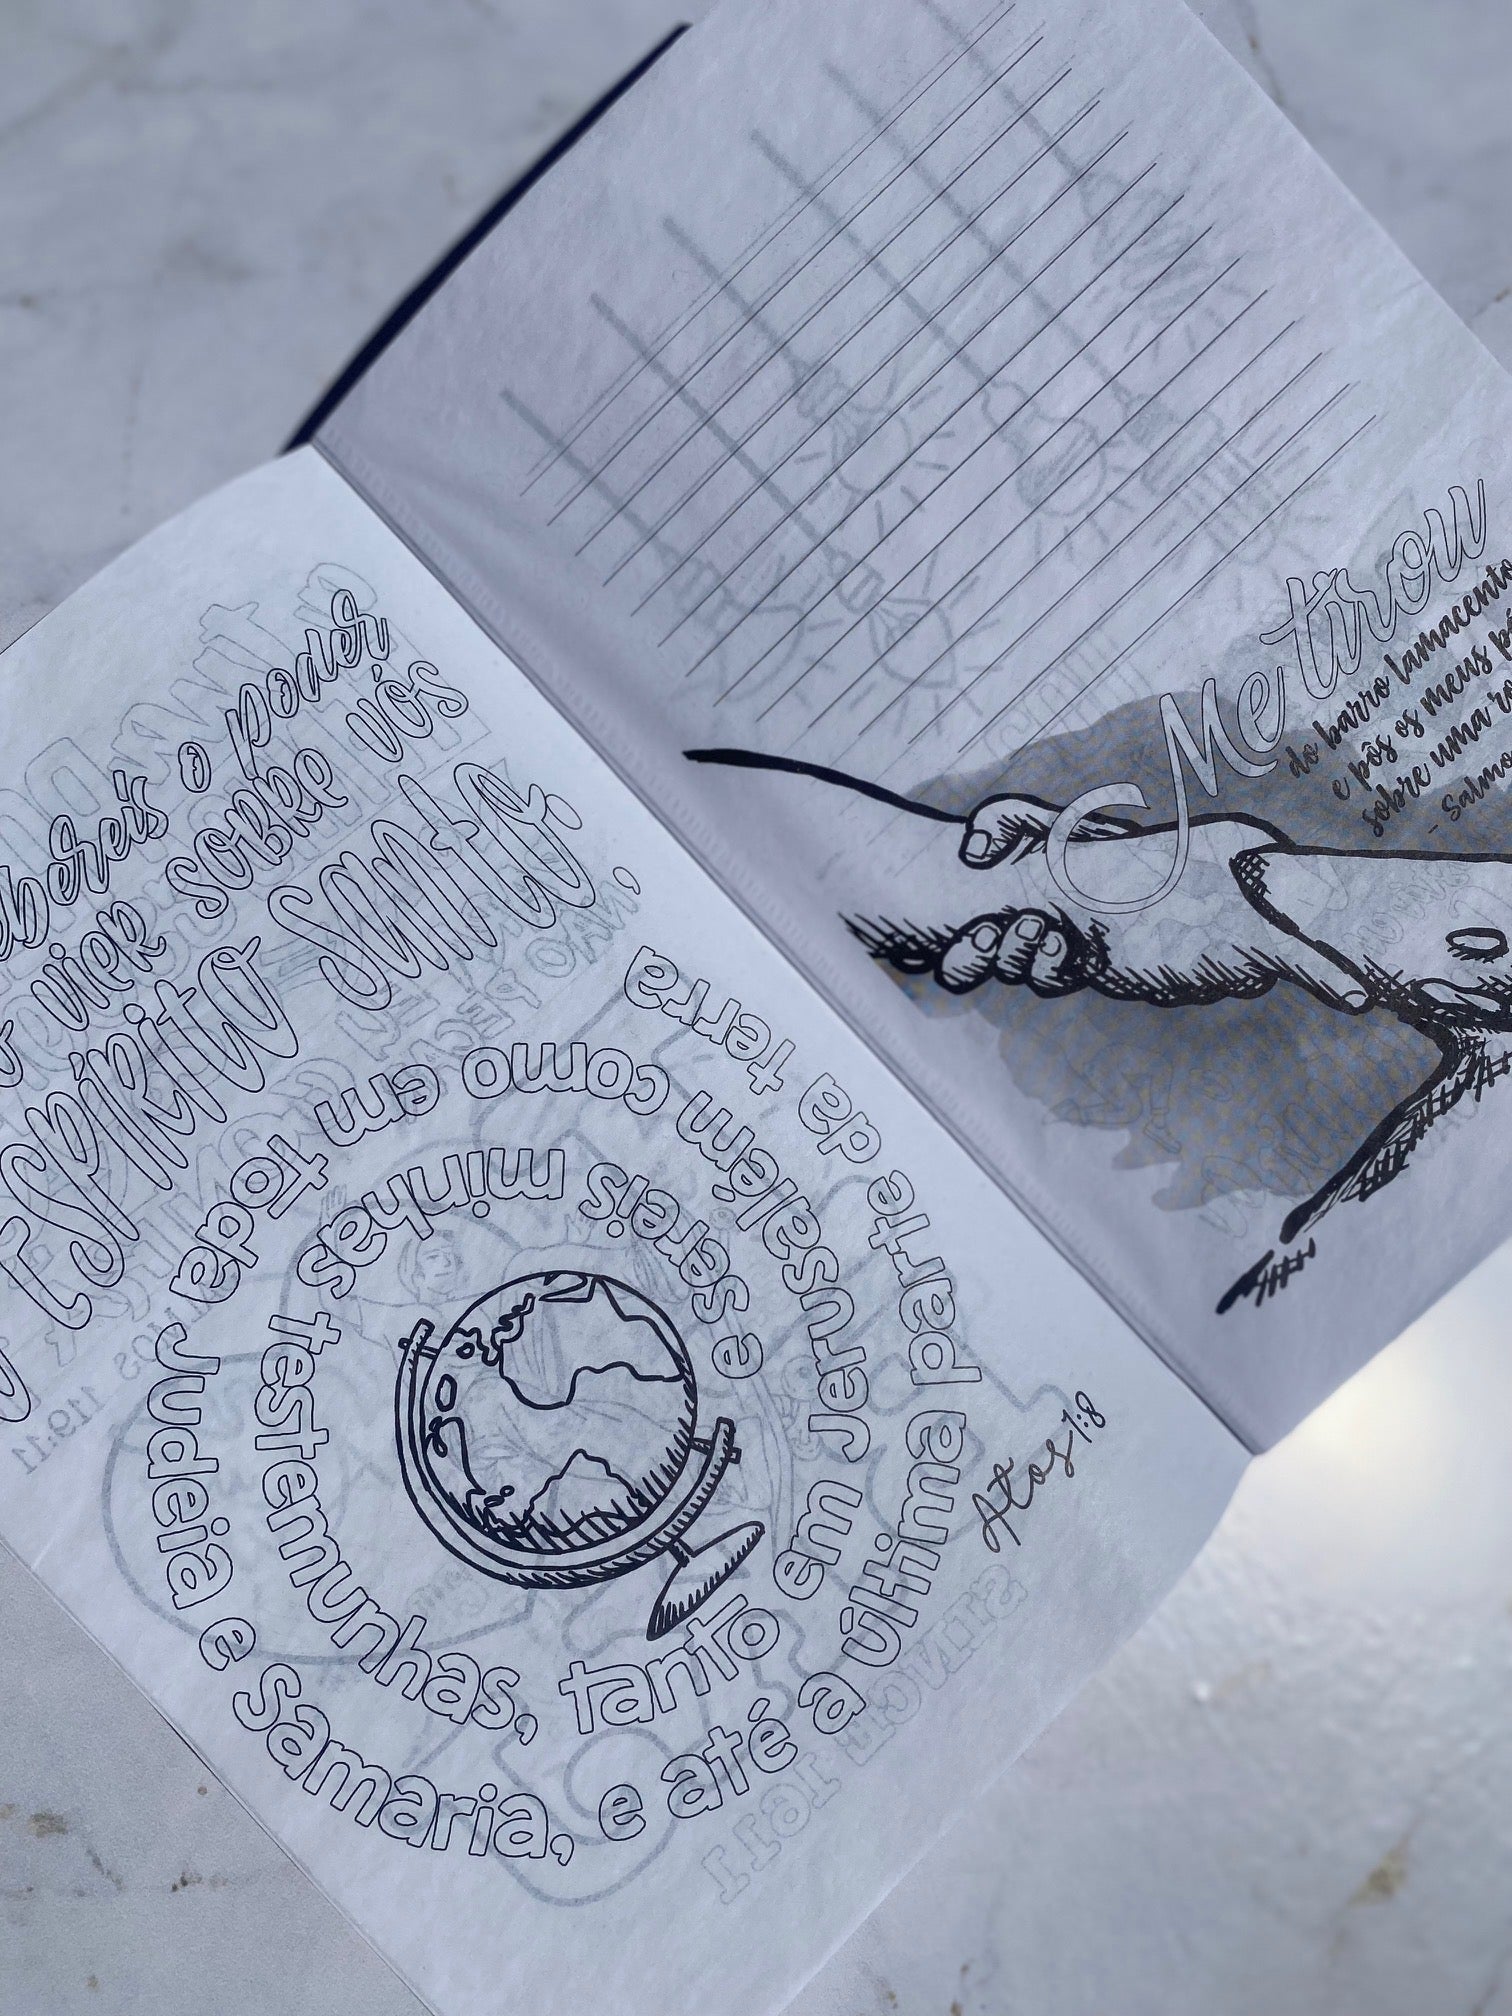 ebereis o poder
vier sobre vós
Espírito Santo,
e sereis minhas testemunhas, tanto em Jerusalém como em toda Judeia e Samaria, e até a última parte da terra
Atos 1:8
Me tirou
do barro lamacento
e pôs os meus pé
sobre uma ro
- Salmo